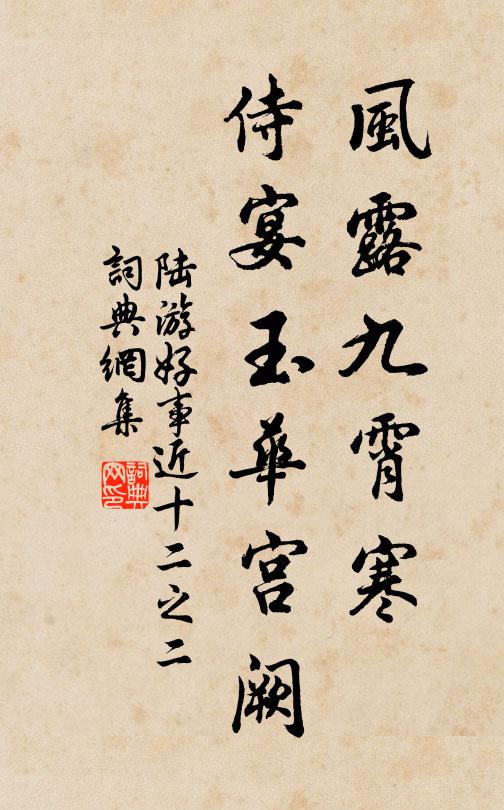 風露九霄寒
侍宴玉華宮闕
陸游好事近十二之二
詞典網集
詞典網印